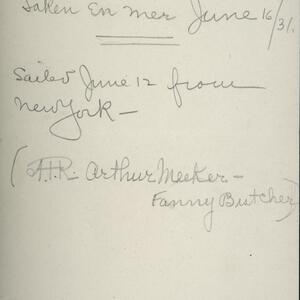 Taken En mer June 16/31.
Sailed June 12 from
New York —
(A.I.R. Arthur Meeker —
Fanny Butcher)